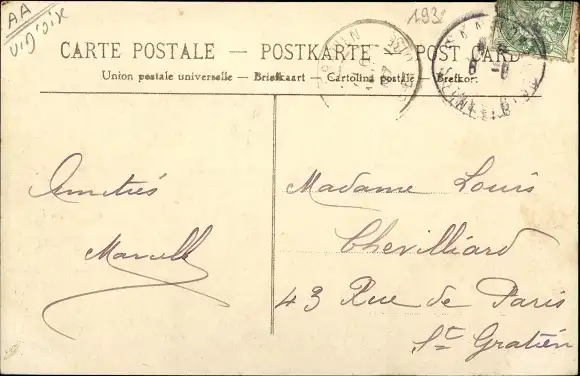 AA
193
CARTE POSTALE — POSTKARTE — POST CARD
Union postale universelle — Briefkaart — Cartolina postale — Brefkort
Amitiés
Marcelle
Madame Louis
Chevilliard
43 Rue de Paris
St Gratien